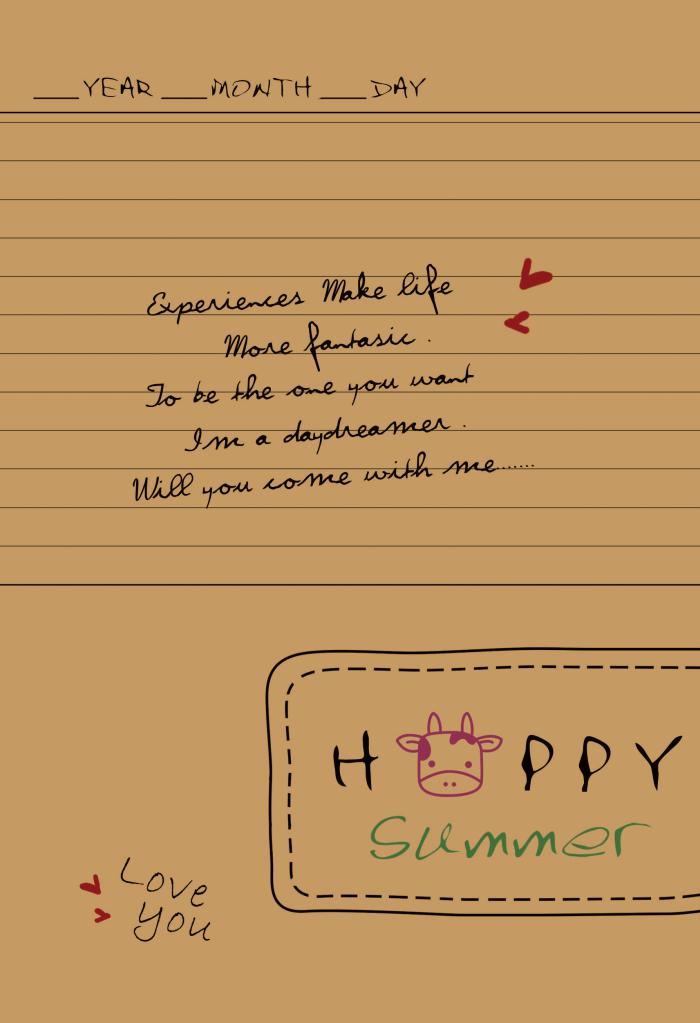 ___YEAR ___MONTH ___DAY
Experiences Make life
More fantasic .
To be the one you want
Im a daydreamer .
Will you come with me......
H PPY
Summer
Love
you